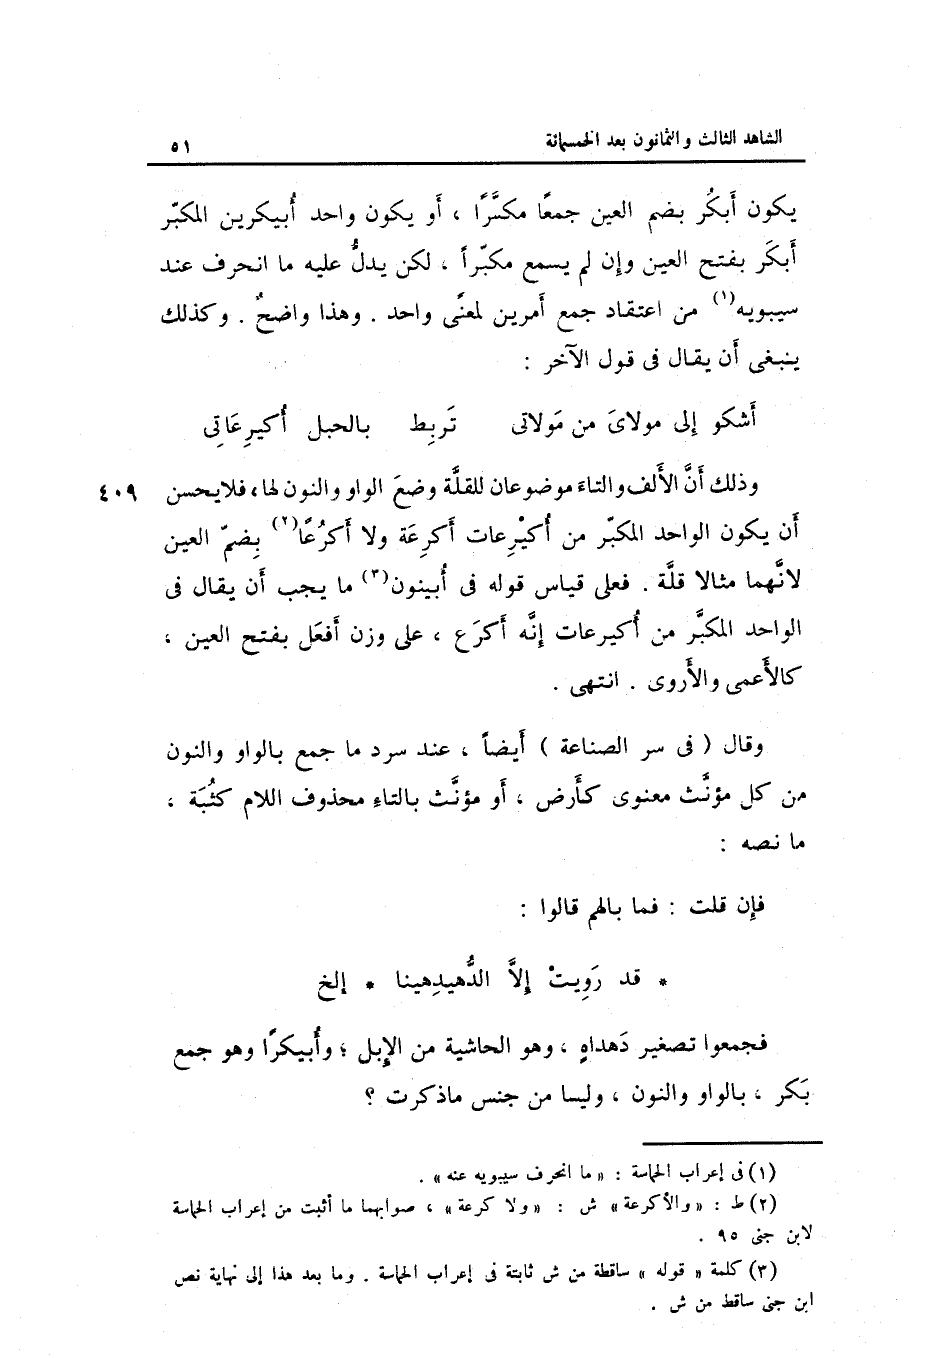 الشاهد الثالث والثمانون بعد الخمسمائة ٥١
يكون أَبكُر بضم العين جمعًا مكسَّرًا ، أَو يكون واحد أُبيكرين المكبّر
أَبكَر بفتح العين وإن لم يسمع مكبّراً ، لكن يدلُّ عليه ما انحرف عند
سيبويه(١) من اعتقاد جمع أَمرين لمعنًى واحد . وهذا واضحٌ . وكذلك
ينبغى أَن يقال فى قول الآخر :
أَشكو إلى مولاىَ من مَولاتى تَربِط بالحبل أُكيرِعَاتى
وذلك أَنَّ الأَلف والتاءَ موضوعان للقلَّة وضعَ الواو والنون لها، فلا يحسن ٤٠٩
أَن يكون الواحد المكبّر من أُكيْرِعات أَكرِعَة ولا أَكرُعًا(٢) بِضمّ العين
لانَّهما مثالا قلَّة . فعلى قياس قوله فى أُبينون(٣) ما يجب أَن يقال فى
الواحد المكبَّر من أُكيرعات إنَّه أَكرَع ، على وزن أَفعَل بفتح العين ،
كالأَعمى والأَروى . انتهى .
وقال ( فى سر الصناعة ) أَيضاً ، عند سرد ما جمع بالواو والنون
من كل مؤنَّث معنوى كأَرض ، أَو مؤنَّث بالتاء محذوف اللام كثُبَة ،
ما نصه :
فإن قلت : فما بالهم قالوا :
* قد رَوِيتْ إلاَّ الدُّهيدِهينا * إلخ
فجمعوا تصغير دَهداهٍ ، وهو الحاشية من الإبل ؛ وأُبيكرًا وهو جمع
بَكر ، بالواو والنون ، وليسا من جنس ماذكرت ؟
(١) فى إعراب الحماسة : « ما انحرف سيبويه عنه » .
(٢) ط : « والأكرعة » ش : « ولا كرعة » ، صوابهما ما أثبت من إعراب الحماسة
لابن جنى ٩٥ .
(٣) كلمة « قوله » ساقطة من ش ثابتة فى إعراب الحماسة . وما بعد هذا إلى نهاية نص
ابن جنى ساقط من ش .